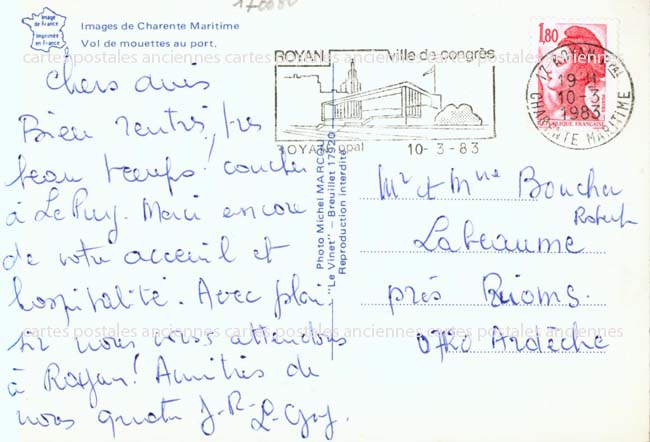 170080
Image
de France
Imprimée
en France
Images de Charente Maritime
Vol de mouettes au port.
cartes postales anciennes cartes postales anciennes cartes postales anciennes
Chers amis
Bien rentrés, très
beau temps! coucher
à Le Puy. Merci encore
de votre acceuil et
hospitalité. Avec plai-
sir nous vous attendons
à Royan! Amitiés de
nous quatre J-R-L-Guy.
Photo Michel MARCOU
"Le Vinet" - Breuillet 17920
Reproduction interdite
ROYAN ville de congrès
ROYAN ppal 10-3-83
1,80
REPUBLIQUE FRANCAISE
17 ROYAN Ppal
19-H
10-3
1983
CHARENTE MARITIME
Mr et Mme Boucher
Robert
Labeaume
près Ruoms.
07120 Ardèche
cartes postales anciennes cartes postales anciennes cartes postales anciennes